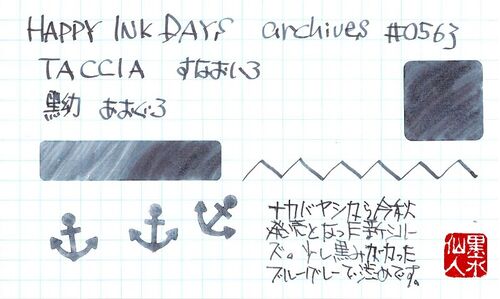 HAPPY INK DAYS archives #0563
TACCIA すなおいろ
黒幼 あおぐろ
ナカバヤシから今秋
発売となった新シリー
ズ。少し黒みがかった
ブルーグレーで渋めです。
墨水
仙人